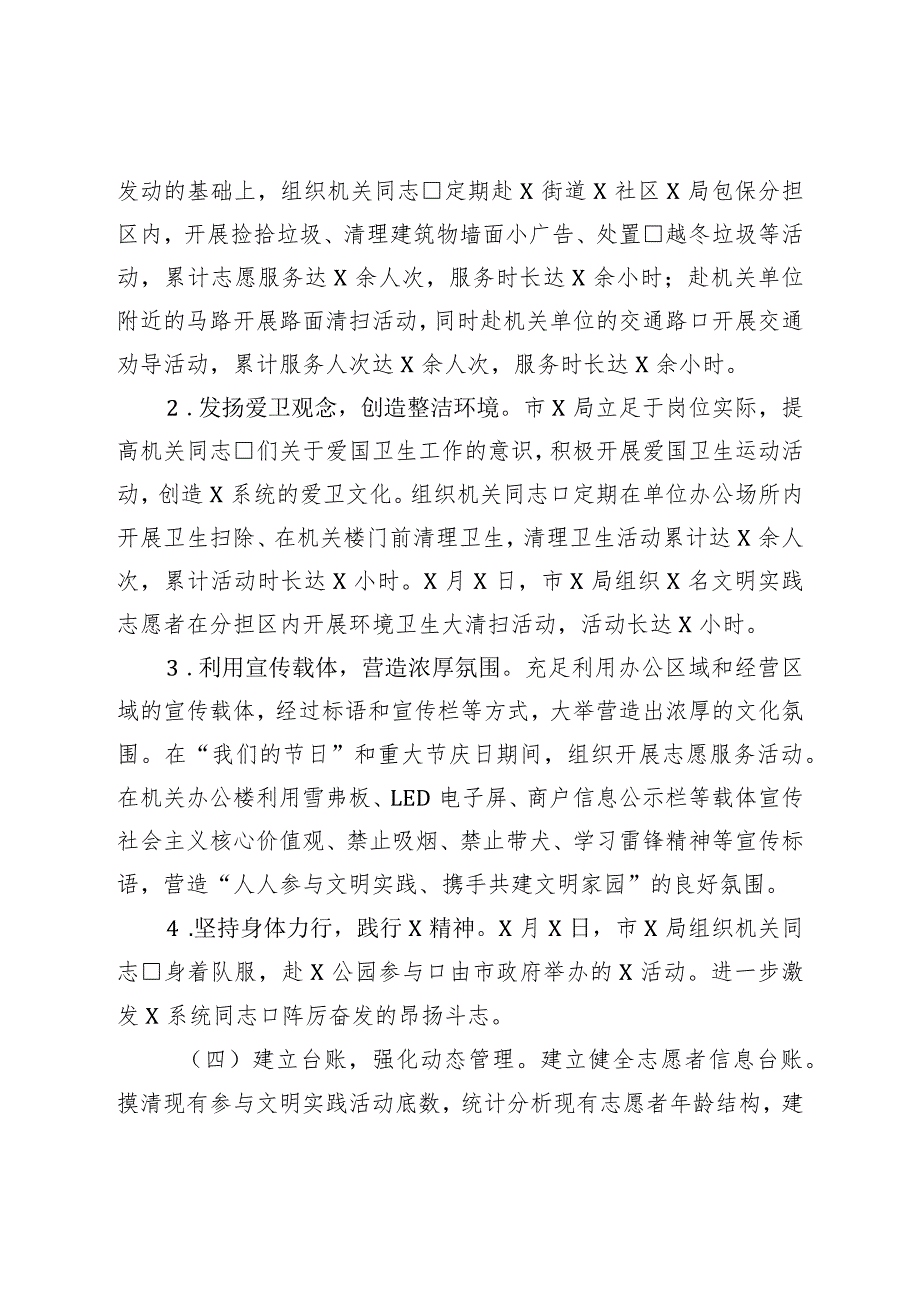 发动的基础上，组织机关同志□定期赴 X 街道 X 社区 X 局包保分担
区内，开展捡拾垃圾、清理建筑物墙面小广告、处置□越冬垃圾等活
动，累计志愿服务达 X 余人次，服务时长达 X 余小时；赴机关单位
附近的马路开展路面清扫活动，同时赴机关单位的交通路口开展交通
劝导活动，累计服务人次达 X 余人次，服务时长达 X 余小时。
2 . 发扬爱卫观念，创造整洁环境。市 X 局立足于岗位实际，提
高机关同志□们关于爱国卫生工作的意识，积极开展爱国卫生运动活
动，创造 X 系统的爱卫文化。组织机关同志口定期在单位办公场所内
开展卫生扫除、在机关楼门前清理卫生，清理卫生活动累计达 X 余人
次，累计活动时长达 X 小时。X 月 X 日，市 X 局组织 X 名文明实践
志愿者在分担区内开展环境卫生大清扫活动，活动长达 X 小时。
3 . 利用宣传载体，营造浓厚氛围。充足利用办公区域和经营区
域的宣传载体，经过标语和宣传栏等方式，大举营造出浓厚的文化氛
围。在“我们的节日”和重大节庆日期间，组织开展志愿服务活动。
在机关办公楼利用雪弗板、LED 电子屏、商户信息公示栏等载体宣传
社会主义核心价值观、禁止吸烟、禁止带犬、学习雷锋精神等宣传标
语，营造“人人参与文明实践、携手共建文明家园”的良好氛围。
4 .坚持身体力行，践行 X 精神。X 月 X 日，市 X 局组织机关同
志□身着队服，赴 X 公园参与口由市政府举办的 X 活动。进一步激
发 X 系统同志口阵厉奋发的昂扬斗志。
（四）建立台账，强化动态管理。建立健全志愿者信息台账。
摸清现有参与文明实践活动底数，统计分析现有志愿者年龄结构，建